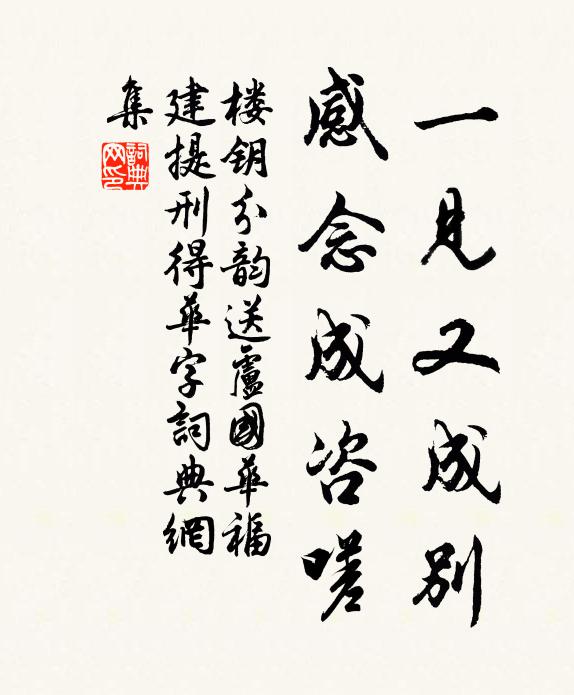 一见又成别
感念成咨嗟
楼钥分韵送盧國華福
建提刑得華字詞典網
集
詞典
网印